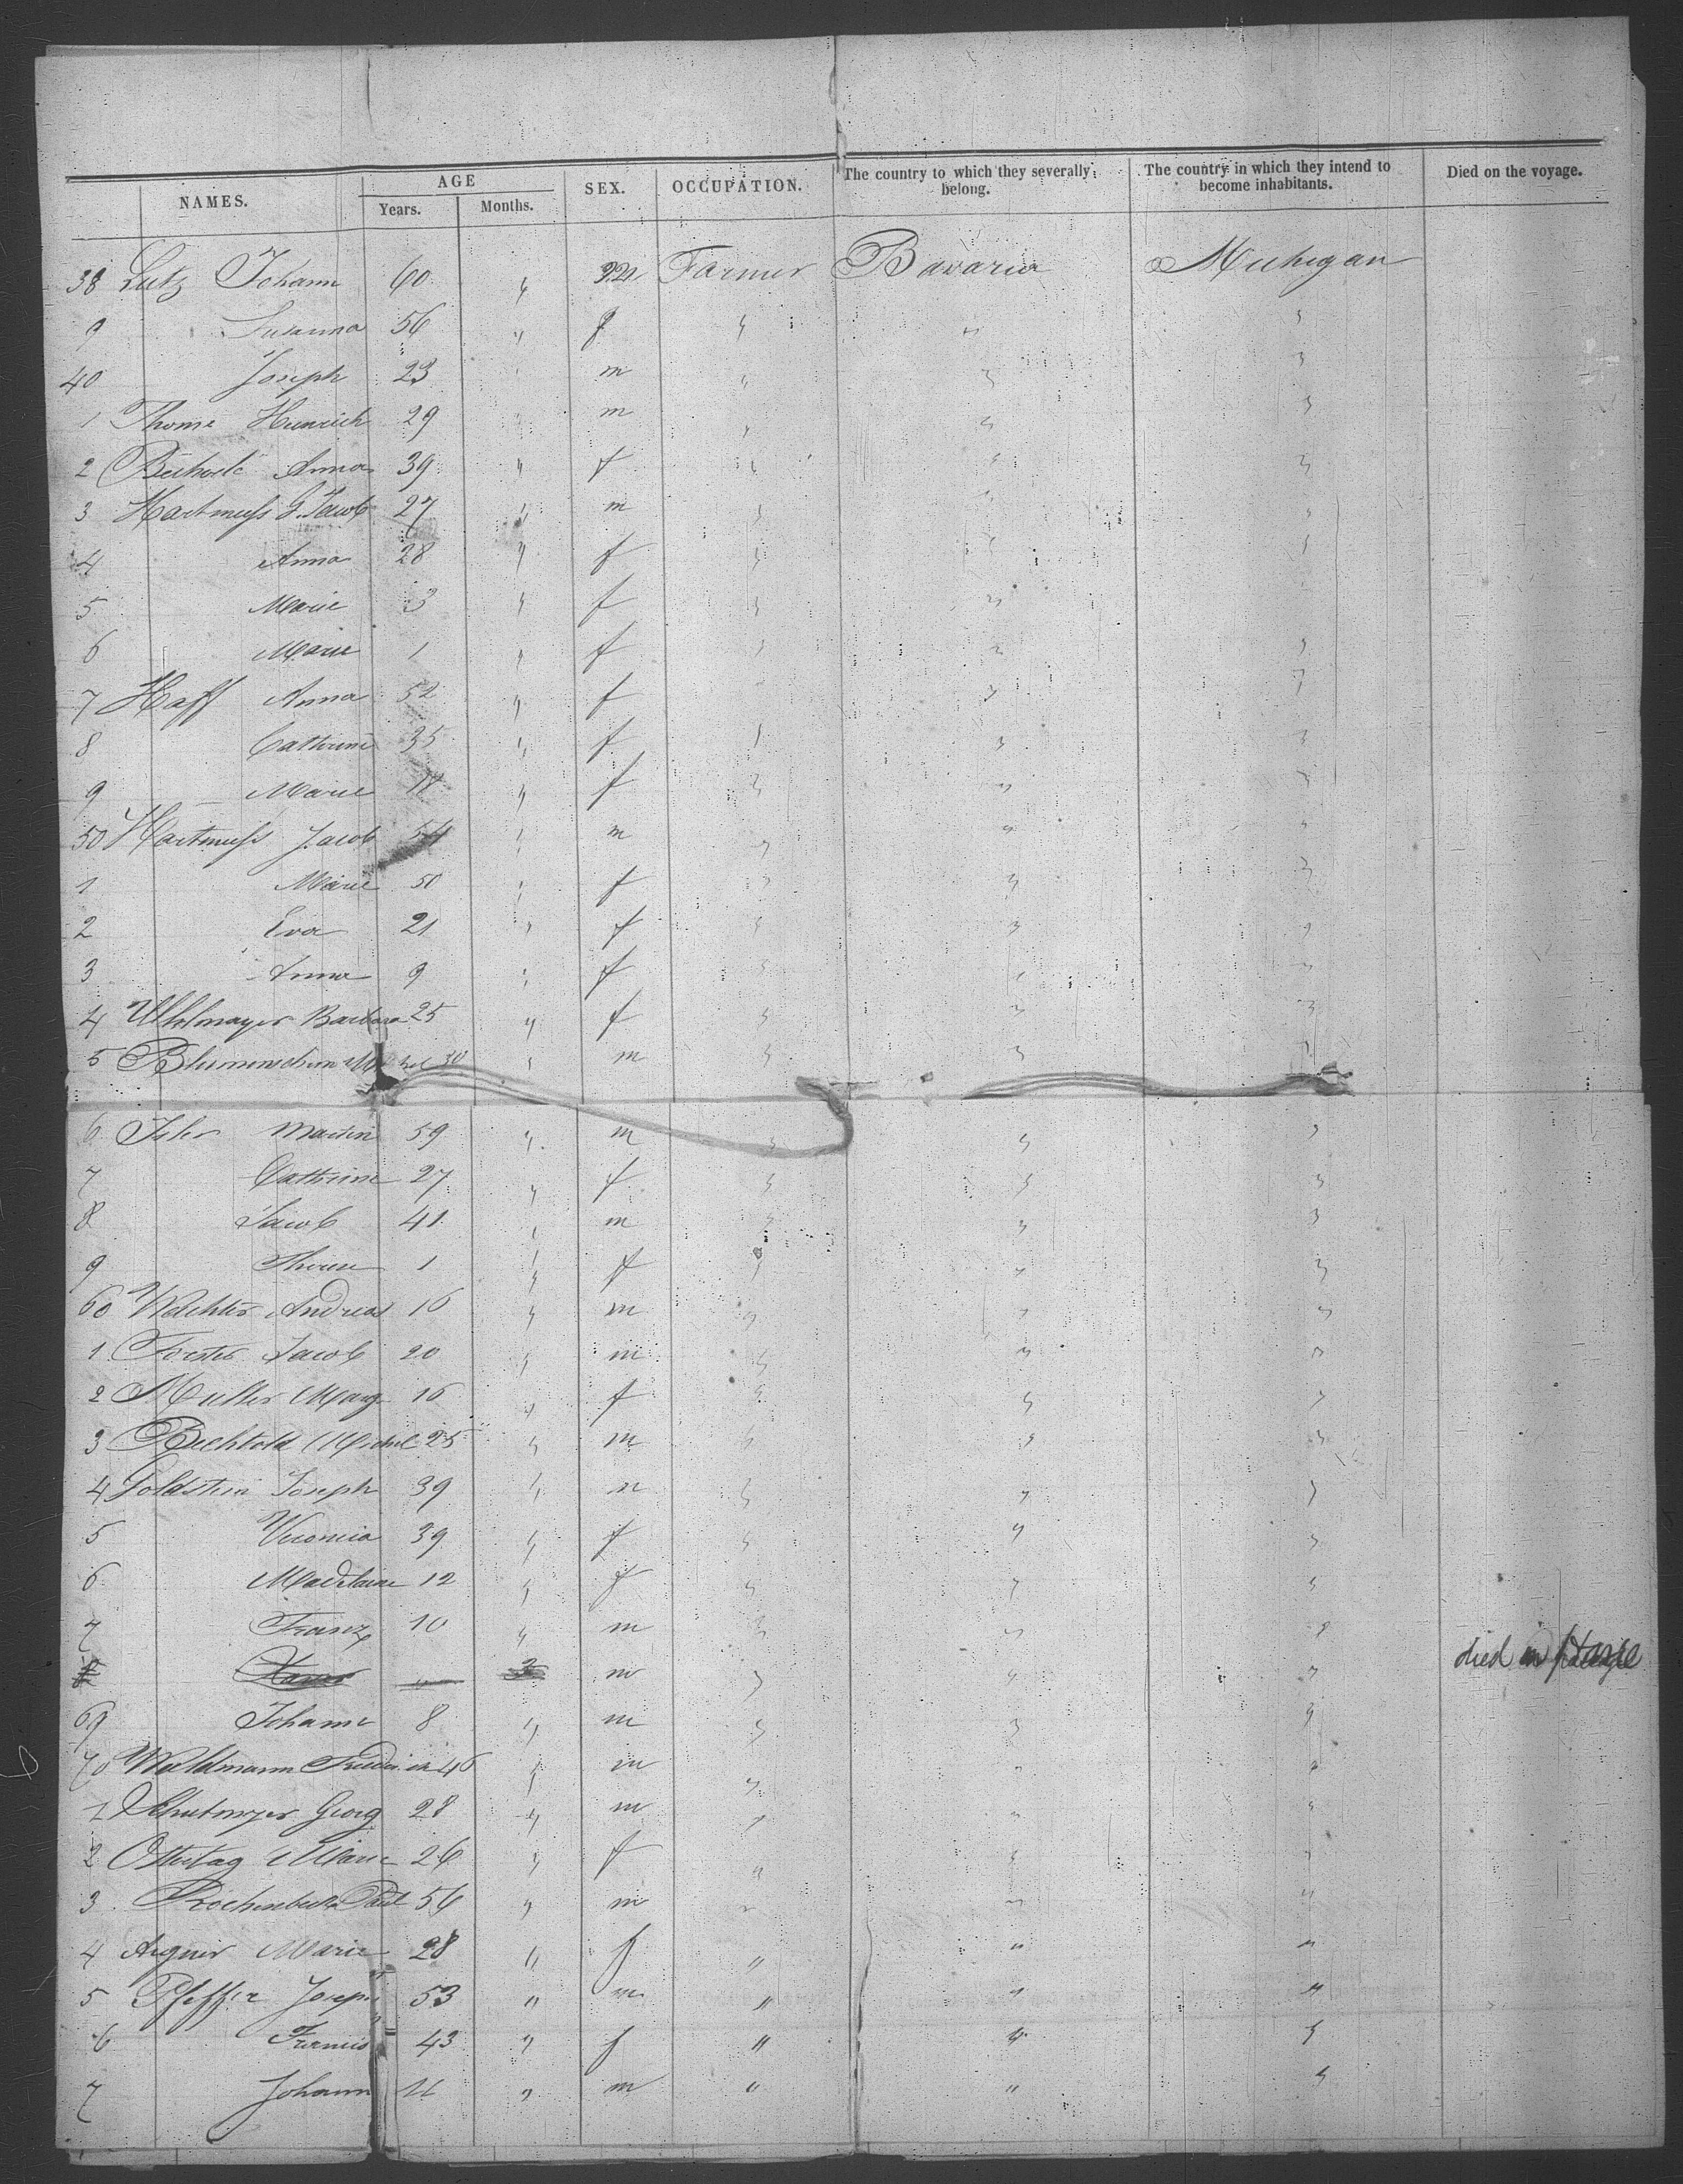 NAMES. AGE Years. Months. SEX. OCCUPATION. The country to which they severally belong. The country in which they intend to become inhabitants. Died on the voyage.
38 Lutz Johann 60 " m Farmer Bavaria Michigan
9 Susanna 56 " f " " "
40 Joseph 23 " m " " "
1 Thome Heinrich 29 m " " "
2 Anna 39 " f " " "
3 Hartmuss J. Jacob 27 " m " " "
4 Anna 28 " f " " "
5 Marie 3 " f " "
6 Marie 1 " f " " "
7 Haff Anna 52 " f " "
8 Catherine 35 " f " " "
9 Marie 18 " f " " "
50 Hartmuss Jacob 54 " m " " "
1 Marie 50 " f " " "
2 Eva 21 " f " " "
3 Anna 9 " f " " "
4 Uhlmayer Barbara 25 " f " " "
5 Blumenschein 30 " m " " "
6 Martin 59 " m " " "
7 Catherine 27 " f " " "
8 Jacob 41 " m " " "
9 1 " f " " "
60 Andreas 16 " m " " "
1 Forster Jacob 20 " m " " "
2 Muller Marg 16 " f " " "
3 Bechtold Michel 25 " m " " "
4 Goldstein Joseph 39 " m " " "
5 Veronica 39 " f " " "
6 Madelaine 12 " f " " "
7 Franz 10 " m " " "
8 Xaver " 3 m " " " died
69 Johann 8 " m " " "
70 Waldmann 46 " m " " "
1 Georg 28 " m " " "
2 Ostertag Marie 26 " f " " "
3 Paul 56 " m " " "
4 Marie 28 " f " " "
5 Pfeffer Joseph 53 " m " " "
6 43 " f " " "
7 Johann " m " " "